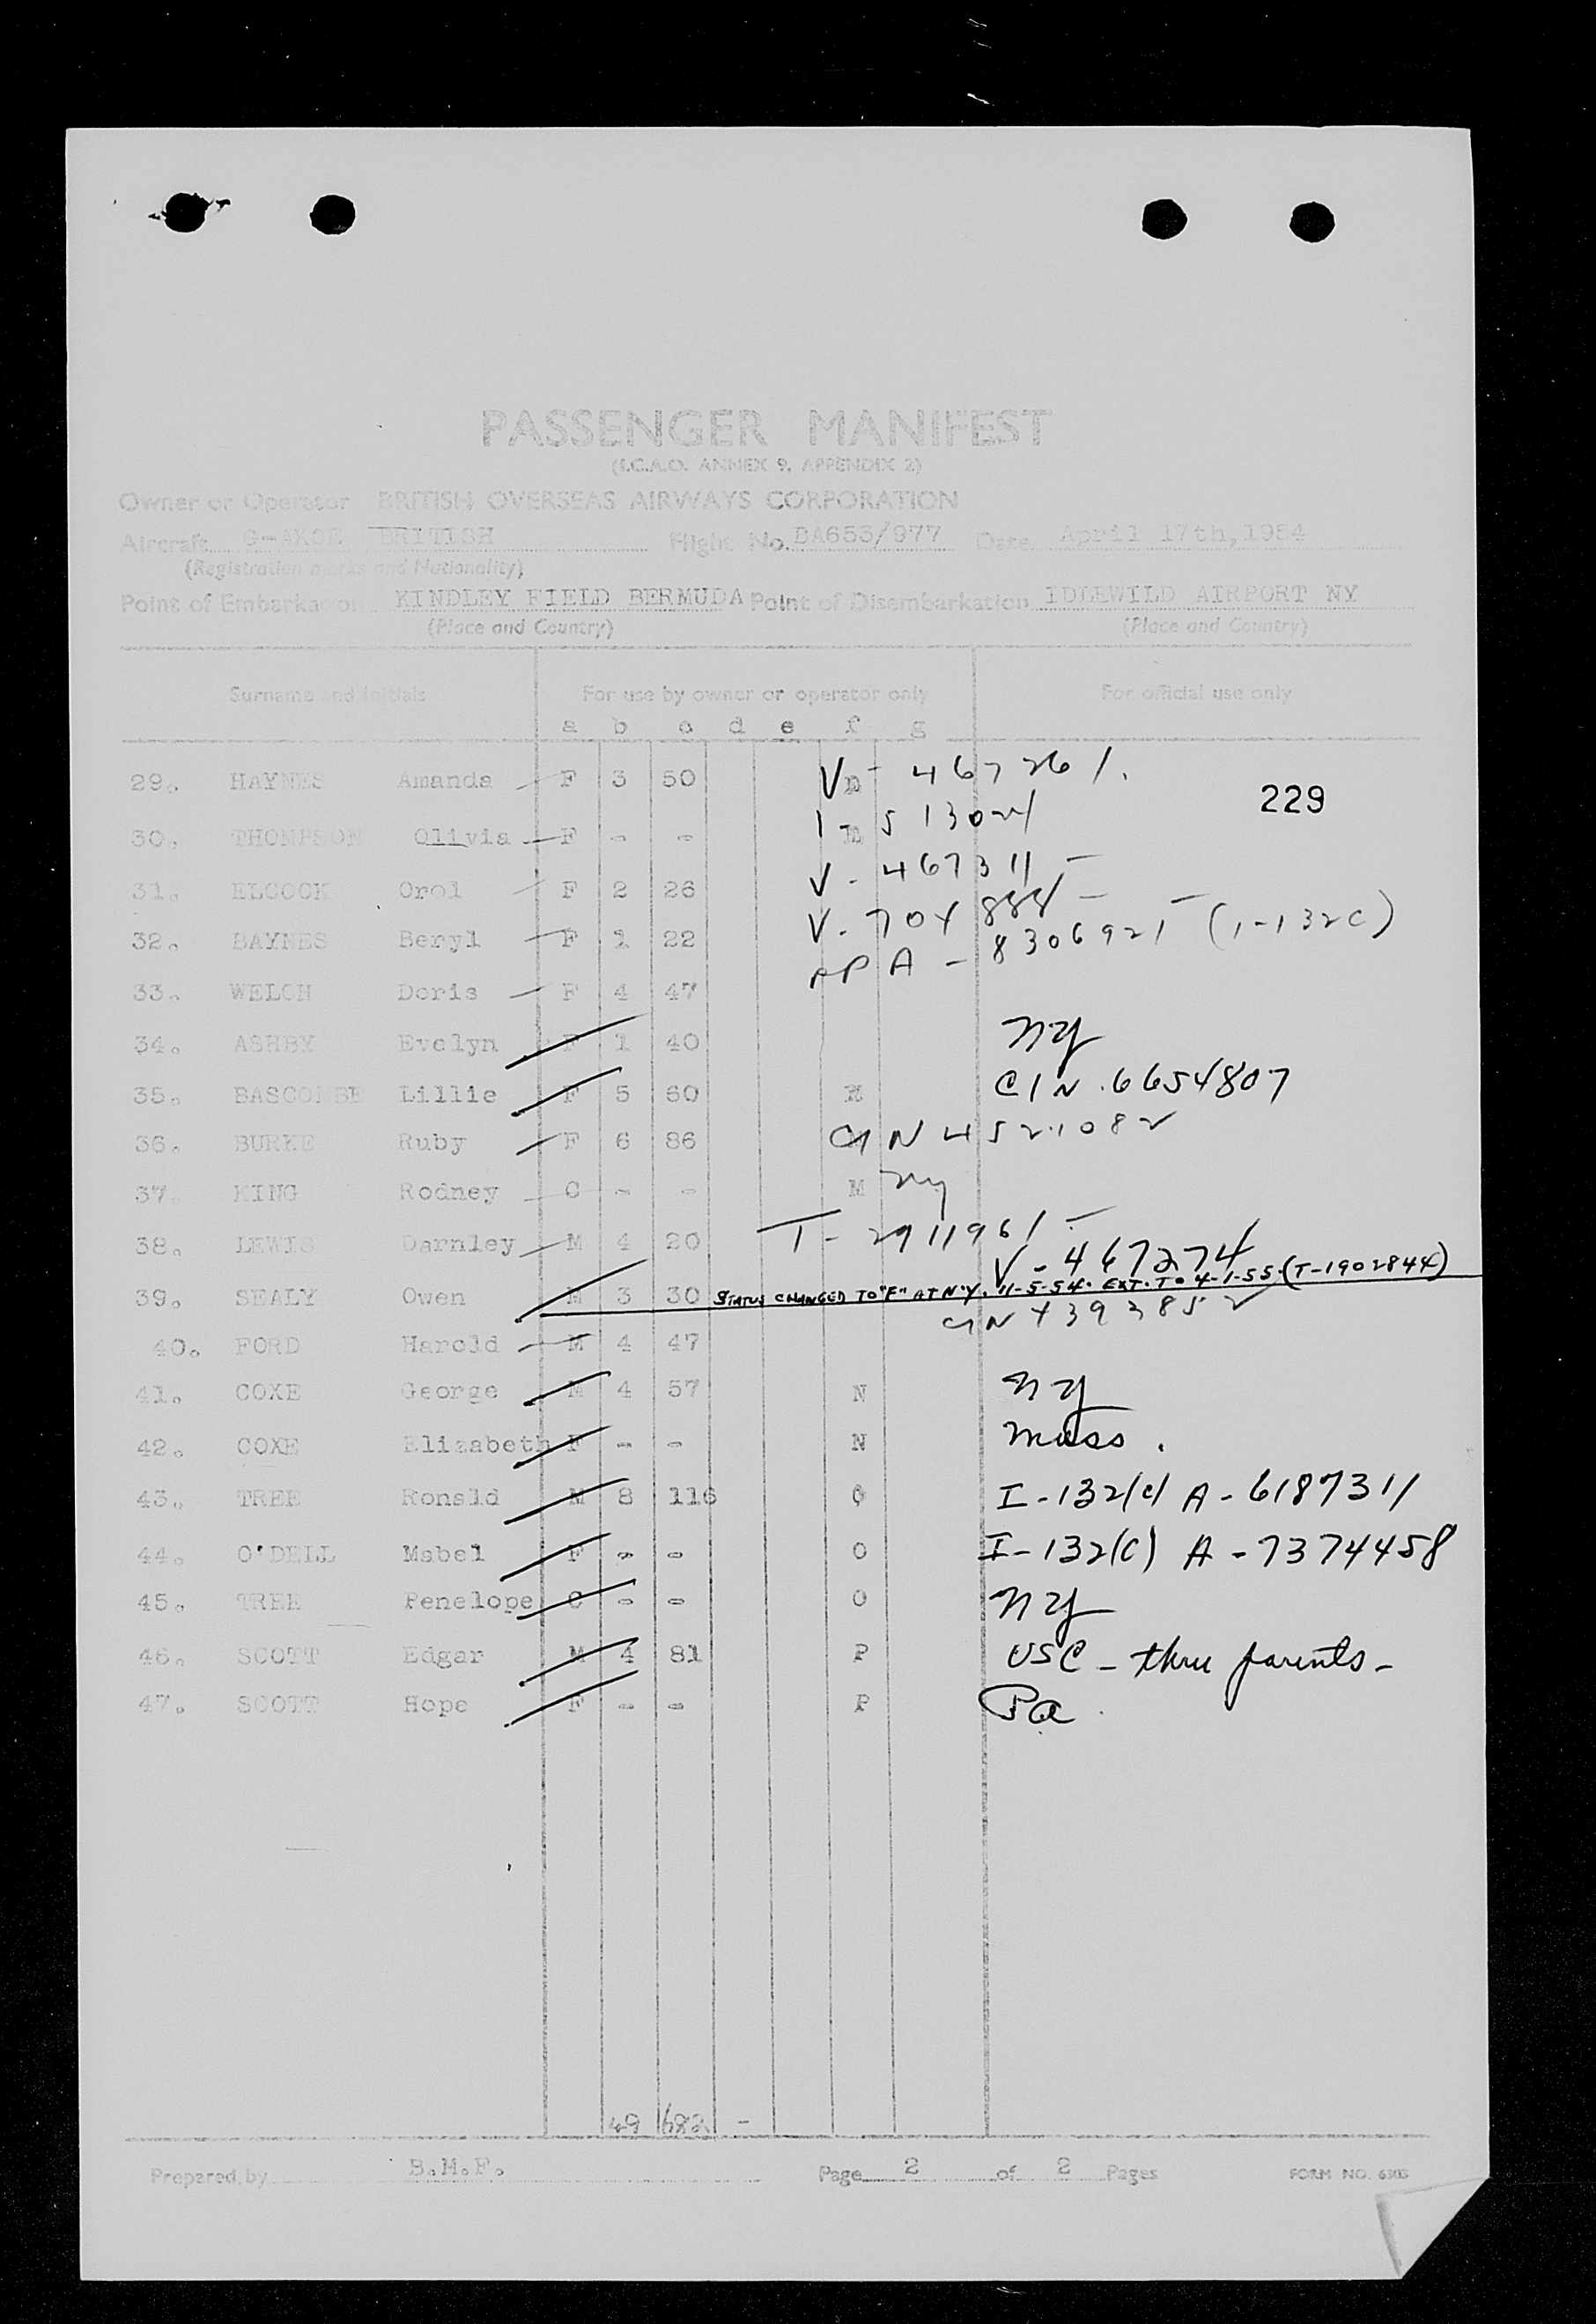 PASSENGER MANIFEST
(I.C.A.O. ANNEX 9, APPENDIX 2)
Owner or Operator BRITISH OVERSEAS AIRWAYS CORPORATION
Aircraft BRITISH Flight No. BA653/977 Date April 17th, 1954
(Registration marks and Nationality)
Point of Embarkation KINDLEY FIELD BERMUDA Point of Disembarkation IDLEWILD AIRPORT NY
(Place and Country) (Place and Country)
Surname and Initials For use by owner or operator only For official use only
a b c d e f g
29. HAYNES Amanda F 3 50 V - 467261.
229
30. THOMPSON Olivia F - -
31. ELCOCK Orol F 2 26 V - 467311 -
32. BAYNES Beryl F 1 22 V - 704884 -
A - 8306921 (1-132C)
33. WELCH Doris F 4 47
34. ASHBY Evelyn F 1 40 NY
35. BASCOMBE Lillie F 5 60 CIN.6654807
36. BURKE Ruby F 6 86
37. KING Rodney C - - M NY
38. LEWIS Darnley M 4 20 T - 2911961 -
V - 467274
39. SEALY Owen M 3 30 STATUS CHANGED TO "F" AT N.Y. 11-5-54. EXT. TO 4-1-55. (T-1902844)
40. FORD Harold M 4 47
41. COXE George M 4 57 N NY
42. COXE Elizabeth F - - N Mass.
43. TREE Ronald M 8 116 O I-132(c) A-6187311
44. O'DELL Mabel F - - O I-132(C) A-7374458
45. TREE Penelope C - - O NY
46. SCOTT Edgar M 4 81 P USC - thru parents -
47. SCOTT Hope F - - P Pa.
49 682 -
Prepared by B.M.F. Page 2 of 2 Pages FORM NO. 6303